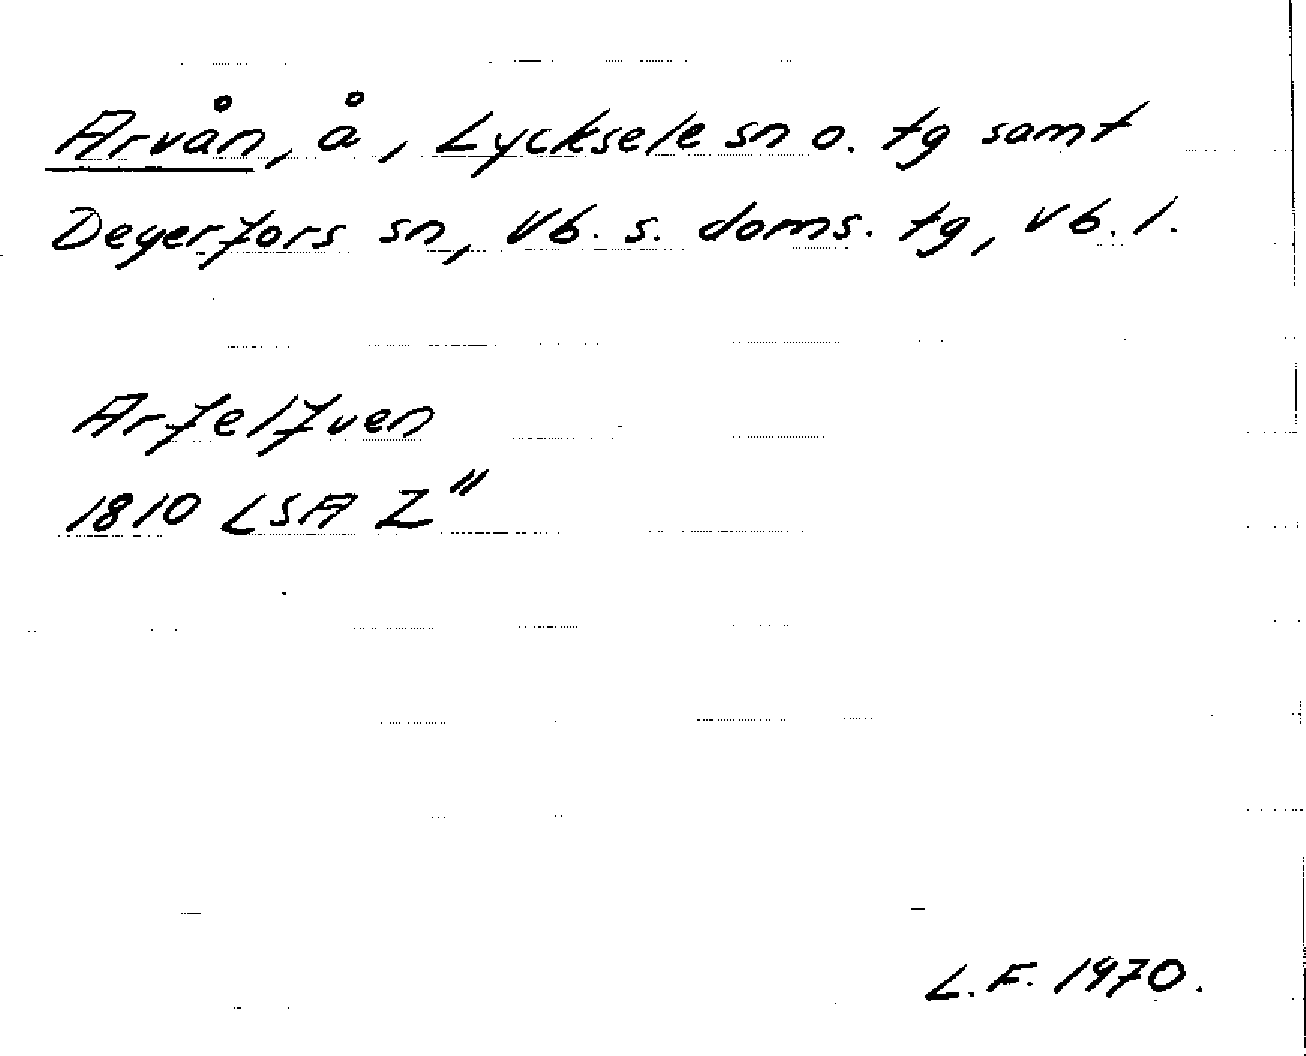 Arvån, å, Lycksele sn o. tg samt
Degerfors sn, Vb. s. doms. tg, Vb. l.
Arfelfven
1810 LSA Z"
L.F. 1970.